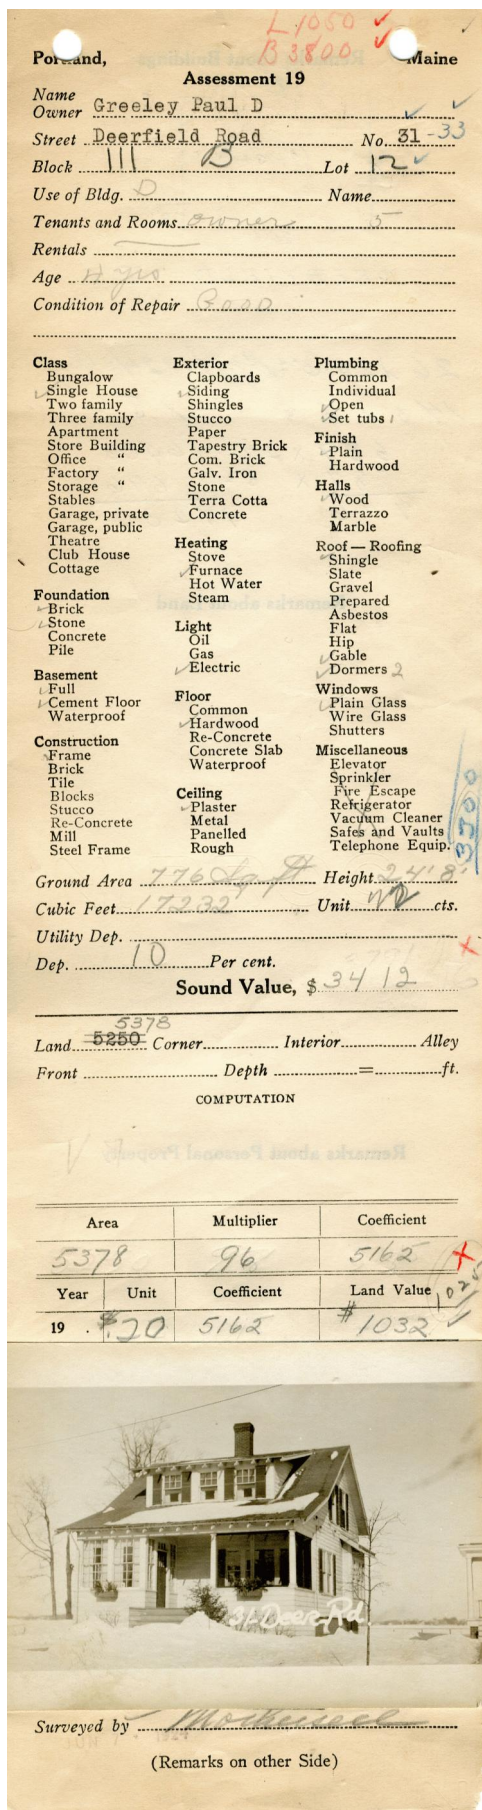 L 1050 ✓
B 3800 ✓
Portland, Maine
Assessment 19
Name
Owner Greeley Paul D
Street Deerfield Road No. 31-33
Block 111 B Lot 12
Use of Bldg. D Name
Tenants and Rooms owner 5
Rentals
Age 4 yrs
Condition of Repair Good
Class
Bungalow
✓ Single House
Two family
Three family
Apartment
Store Building
Office "
Factory "
Storage "
Stables
Garage, private
Garage, public
Theatre
Club House
Cottage
Foundation
✓ Brick
✓ Stone
Concrete
Pile
Basement
✓ Full
✓ Cement Floor
Waterproof
Construction
✓ Frame
Brick
Tile
Blocks
Stucco
Re-Concrete
Mill
Steel Frame
Exterior
Clapboards
✓ Siding
Shingles
Stucco
Paper
Tapestry Brick
Com. Brick
Galv. Iron
Stone
Terra Cotta
Concrete
Heating
Stove
✓ Furnace
Hot Water
Steam
Light
Oil
Gas
✓ Electric
Floor
Common
✓ Hardwood
Re-Concrete
Concrete Slab
Waterproof
Ceiling
✓ Plaster
Metal
Panelled
Rough
Plumbing
Common
Individual
✓ Open
✓ Set tubs 1
Finish
✓ Plain
Hardwood
Halls
✓ Wood
Terrazzo
Marble
Roof — Roofing
✓ Shingle
Slate
Gravel
Prepared
Asbestos
Flat
Hip
✓ Gable
✓ Dormers 2
Windows
✓ Plain Glass
Wire Glass
Shutters
Miscellaneous
Elevator
Sprinkler
Fire Escape
Refrigerator
Vacuum Cleaner
Safes and Vaults
Telephone Equip.
Ground Area 776 Sq ft Height 24'8"
Cubic Feet 17232 Unit 22 cts.
Utility Dep.
Dep. 10 Per cent.
Sound Value, $ 3412
5378
Land 5250 Corner Interior Alley
Front Depth = ft.
COMPUTATION
Area Multiplier Coefficient
5378 96 5162
Year Unit Coefficient Land Value
1025
19 . $.20 5162 # 1032
31 Deer. Rd.
Surveyed by
(Remarks on other Side)